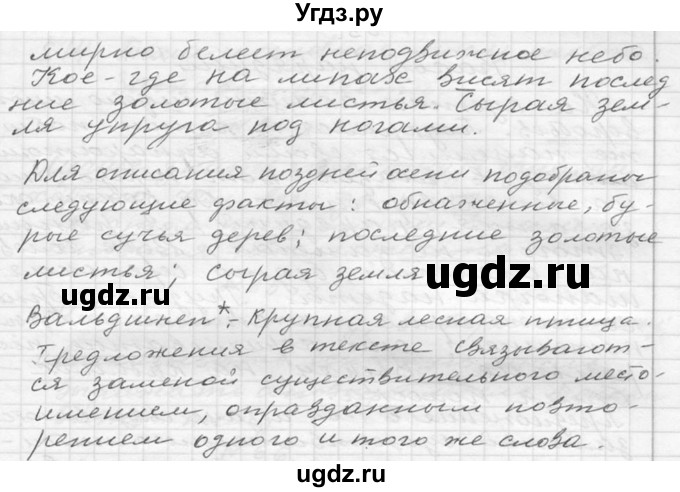 Угдз.ру
мирно белеет неподвижное небо.
Кое-где на липах висят послед
ние золотые листья. Сырая зем-
ля упруга под ногами.
Для описания поздней осени подобраны
следующие факты: обнаженные, бу-
рые сучья дерев; последние золотые
листья; сырая земля
ugdz.ru
ugdz.ru
Вальдшнеп* - крупная лесная птица.
Предложения в тексте связывают-
ся заменой существительного место-
имением, оправданным повто-
рением одного и того же слова.
ugdz.ru